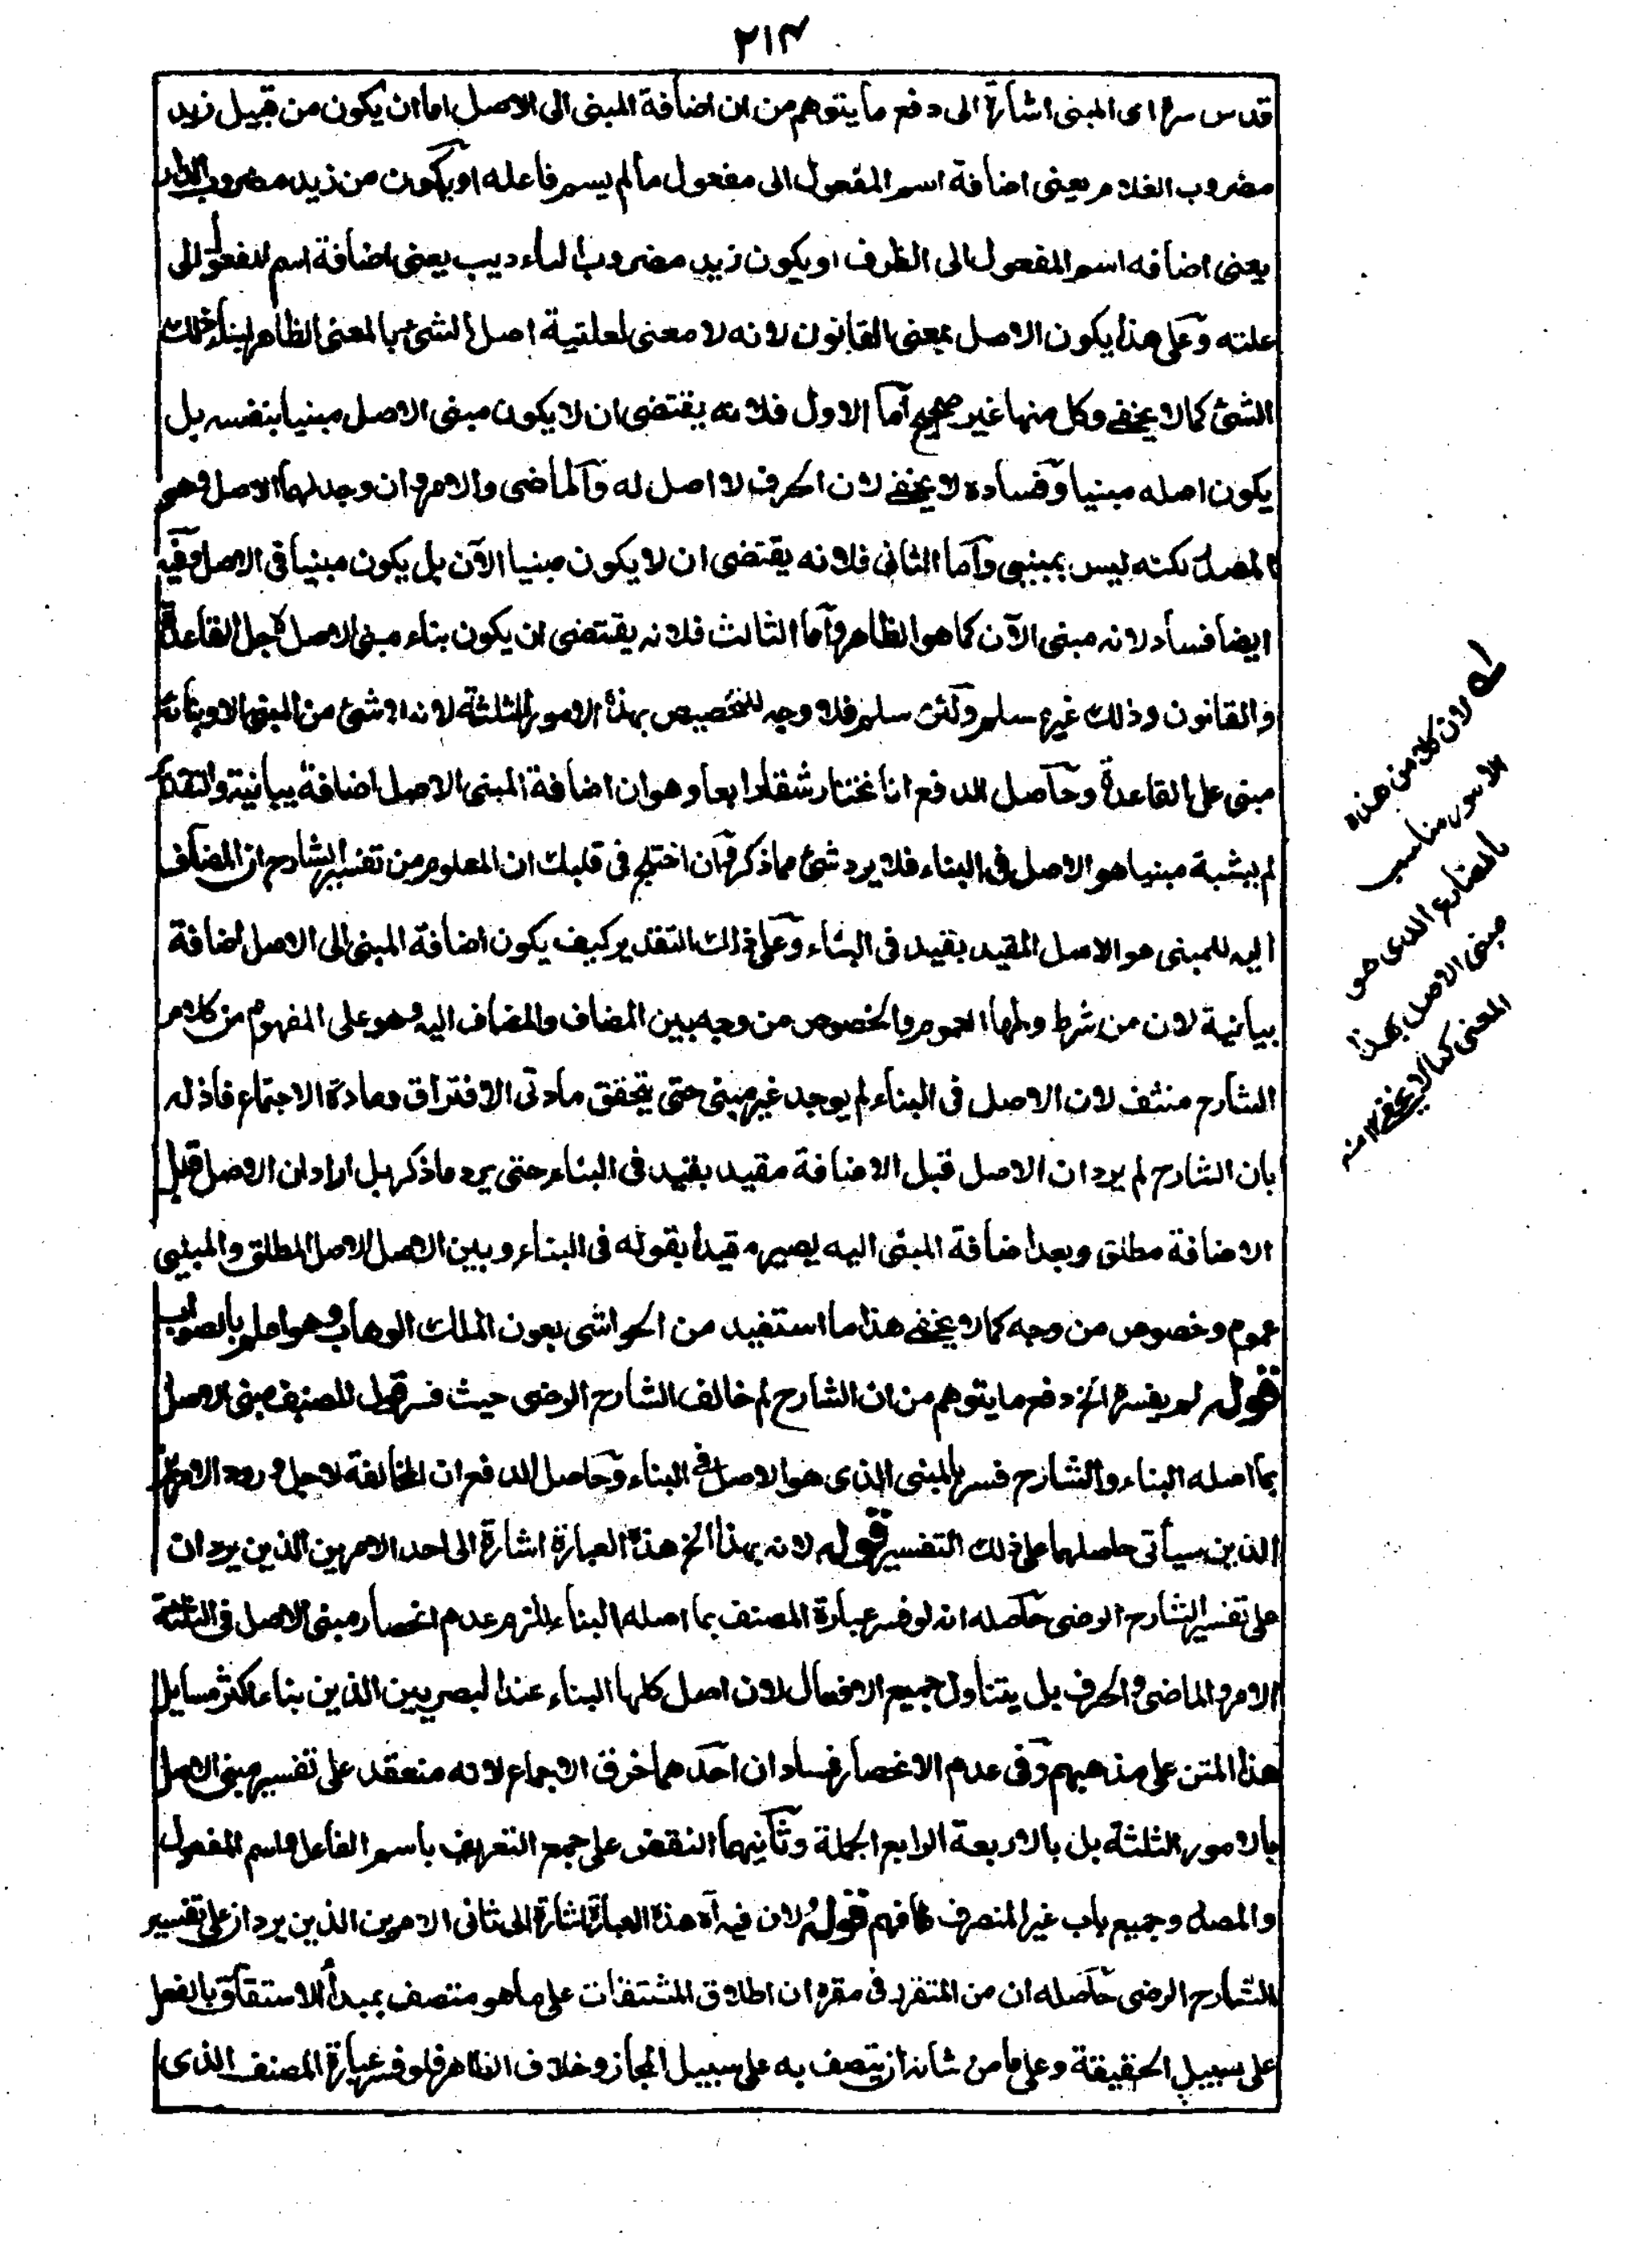 ٢١٤
قدس سره اى المبنى اشارة الى دفع ما يتوهم من ان اضافة المبنى الى الاصل اما ان يكون من قبيل زيد
مضروب الغلام يعنى اضافة اسم المفعول الى مفعول مالم يسم فاعله او يكون من زيد مضروب الدار
يعنى اضافه اسم المفعول الى الظرف او يكون زيد مضروب يعنى اضافة اسم المفعول الى
علته وعلى هذا يكون الاصل بمعنى القانون لانه لا معنى لعلتية اصل الشئ بالمعنى الظاهر لبناء ذلك
الشئ كما لا يخفے وكل منها غير صحيح اما الاول فلانه يقتضى ان لا يكون مبنى الاصل مبنيا بنفسه بل
يكون اصله مبنيا وفساده لا يخفے لان الحرف لا اصل له والماضى والامر وان وجد لهما الاصل وهو
المصدر لكنه ليس بمبنى واما الثانى فلانه يقتضى ان لا يكون مبنيا الآن بل يكون مبنيا فى الاصل وفيه
ايضا فساد لانه مبنى الآن كما هو الظاهر واما الثالث فلانه يقتضى ان يكون بناء مبنى الاصل لاجل القاعدة
والقانون وذلك غير مسلم ولئن سلم فلا وجه للتخصيص بهذه الامور الثلثة لانه لا شئ من المبنى الا وبنائه
مبنى على القاعدة وحاصل الدفع انا نختار شقا رابعا وهو ان اضافة المبنى الاصل اضافة بيانية والتقدير
لم يشبه مبنيا هو الاصل فى البناء فلا يرد شئ مما ذكر فان اختلج فى قلبك ان المعلوم من تفسير الشارح ان المضاف
اليه للمبنى هو الاصل المقيد بقيد فى البناء وعلى ذلك التقدير كيف يكون اضافة المبنى الى الاصل اضافة
بيانية لان من شرطها العموم والخصوص من وجه بين المضاف والمضاف اليه وهو على المفهوم من كلام
الشارح منتف لان الاصل فى البناء لم يوجد غير مبنى حتى يتحقق مادتى الافتراق ومادة الاجتماع فاذله
بان الشارح لم يرد ان الاصل قبل الاضافة مقيد بقيد فى البناء حتى يرد ما ذكر بل اراد ان الاصل قبل
الاضافة مطلق وبعد اضافة المبنى اليه يصير مقيدا بقوله فى البناء وبين الاصل المطلق والمبنى
عموم وخصوص من وجه كما لا يخفے هذا ما استفيد من الحواشى بعون الملك الوهاب وهو اعلم بالصواب
قوله لم يفسره الخ دفع ما يتوهم من ان الشارح لم خالف الشارح الرضى حيث فسر قول المصنف مبنى الاصل
بما اصله البناء والشارح فسر بالمبنى الذى هو الاصل فى البناء وحاصل الدفع ان المخالفة لاجل ورود الامرين
الذين سيأتى حاصلهما على ذلك التفسير قوله لانه بهذا الخ هذه العبارة اشارة الى احد الامرين الذين يردان
على تفسير الشارح الرضى حاصله انه لو فسر عبارة المصنف بما اصله البناء يلزم عدم انحصار مبنى الاصل فى الثلثة
الامر والماضى والحرف بل يتناول جميع الافعال لان اصل كلها البناء عند البصريين الذين بناء اكثر مسايل
هذا المتن على مذهبهم وفى عدم الانحصار فسادان احدهما خرق الاجماع لانه منعقد على تفسير مبنى الاصل
بالامور الثلثة بل بالاربعة الرابع الجملة وثانيهما النقض على جمع التعريف باسم الفاعل واسم المفعول
والمصدر وجميع باب غير المنصرف فافهم قوله لان فيه آه هذه العبارة اشارة الى ثانى الامرين الذين يردان على تفسير
الشارح الرضى حاصله ان من المتقرر فى مقره ان اطلاق المشتقات على ما هو متصف بمبدأ الاشتقاق بالفعل
على سبيل الحقيقة وعلى ما من شانه ان يتصف به على سبيل المجاز وخلاف الظاهر فلو فسر عبارة المصنف الذى
له لان كلا من هذه
الامور مناسب
بالمضارع الذى هو
مبنى الاصل بهذا
المعنى كما لا يخفے ١٢ منه